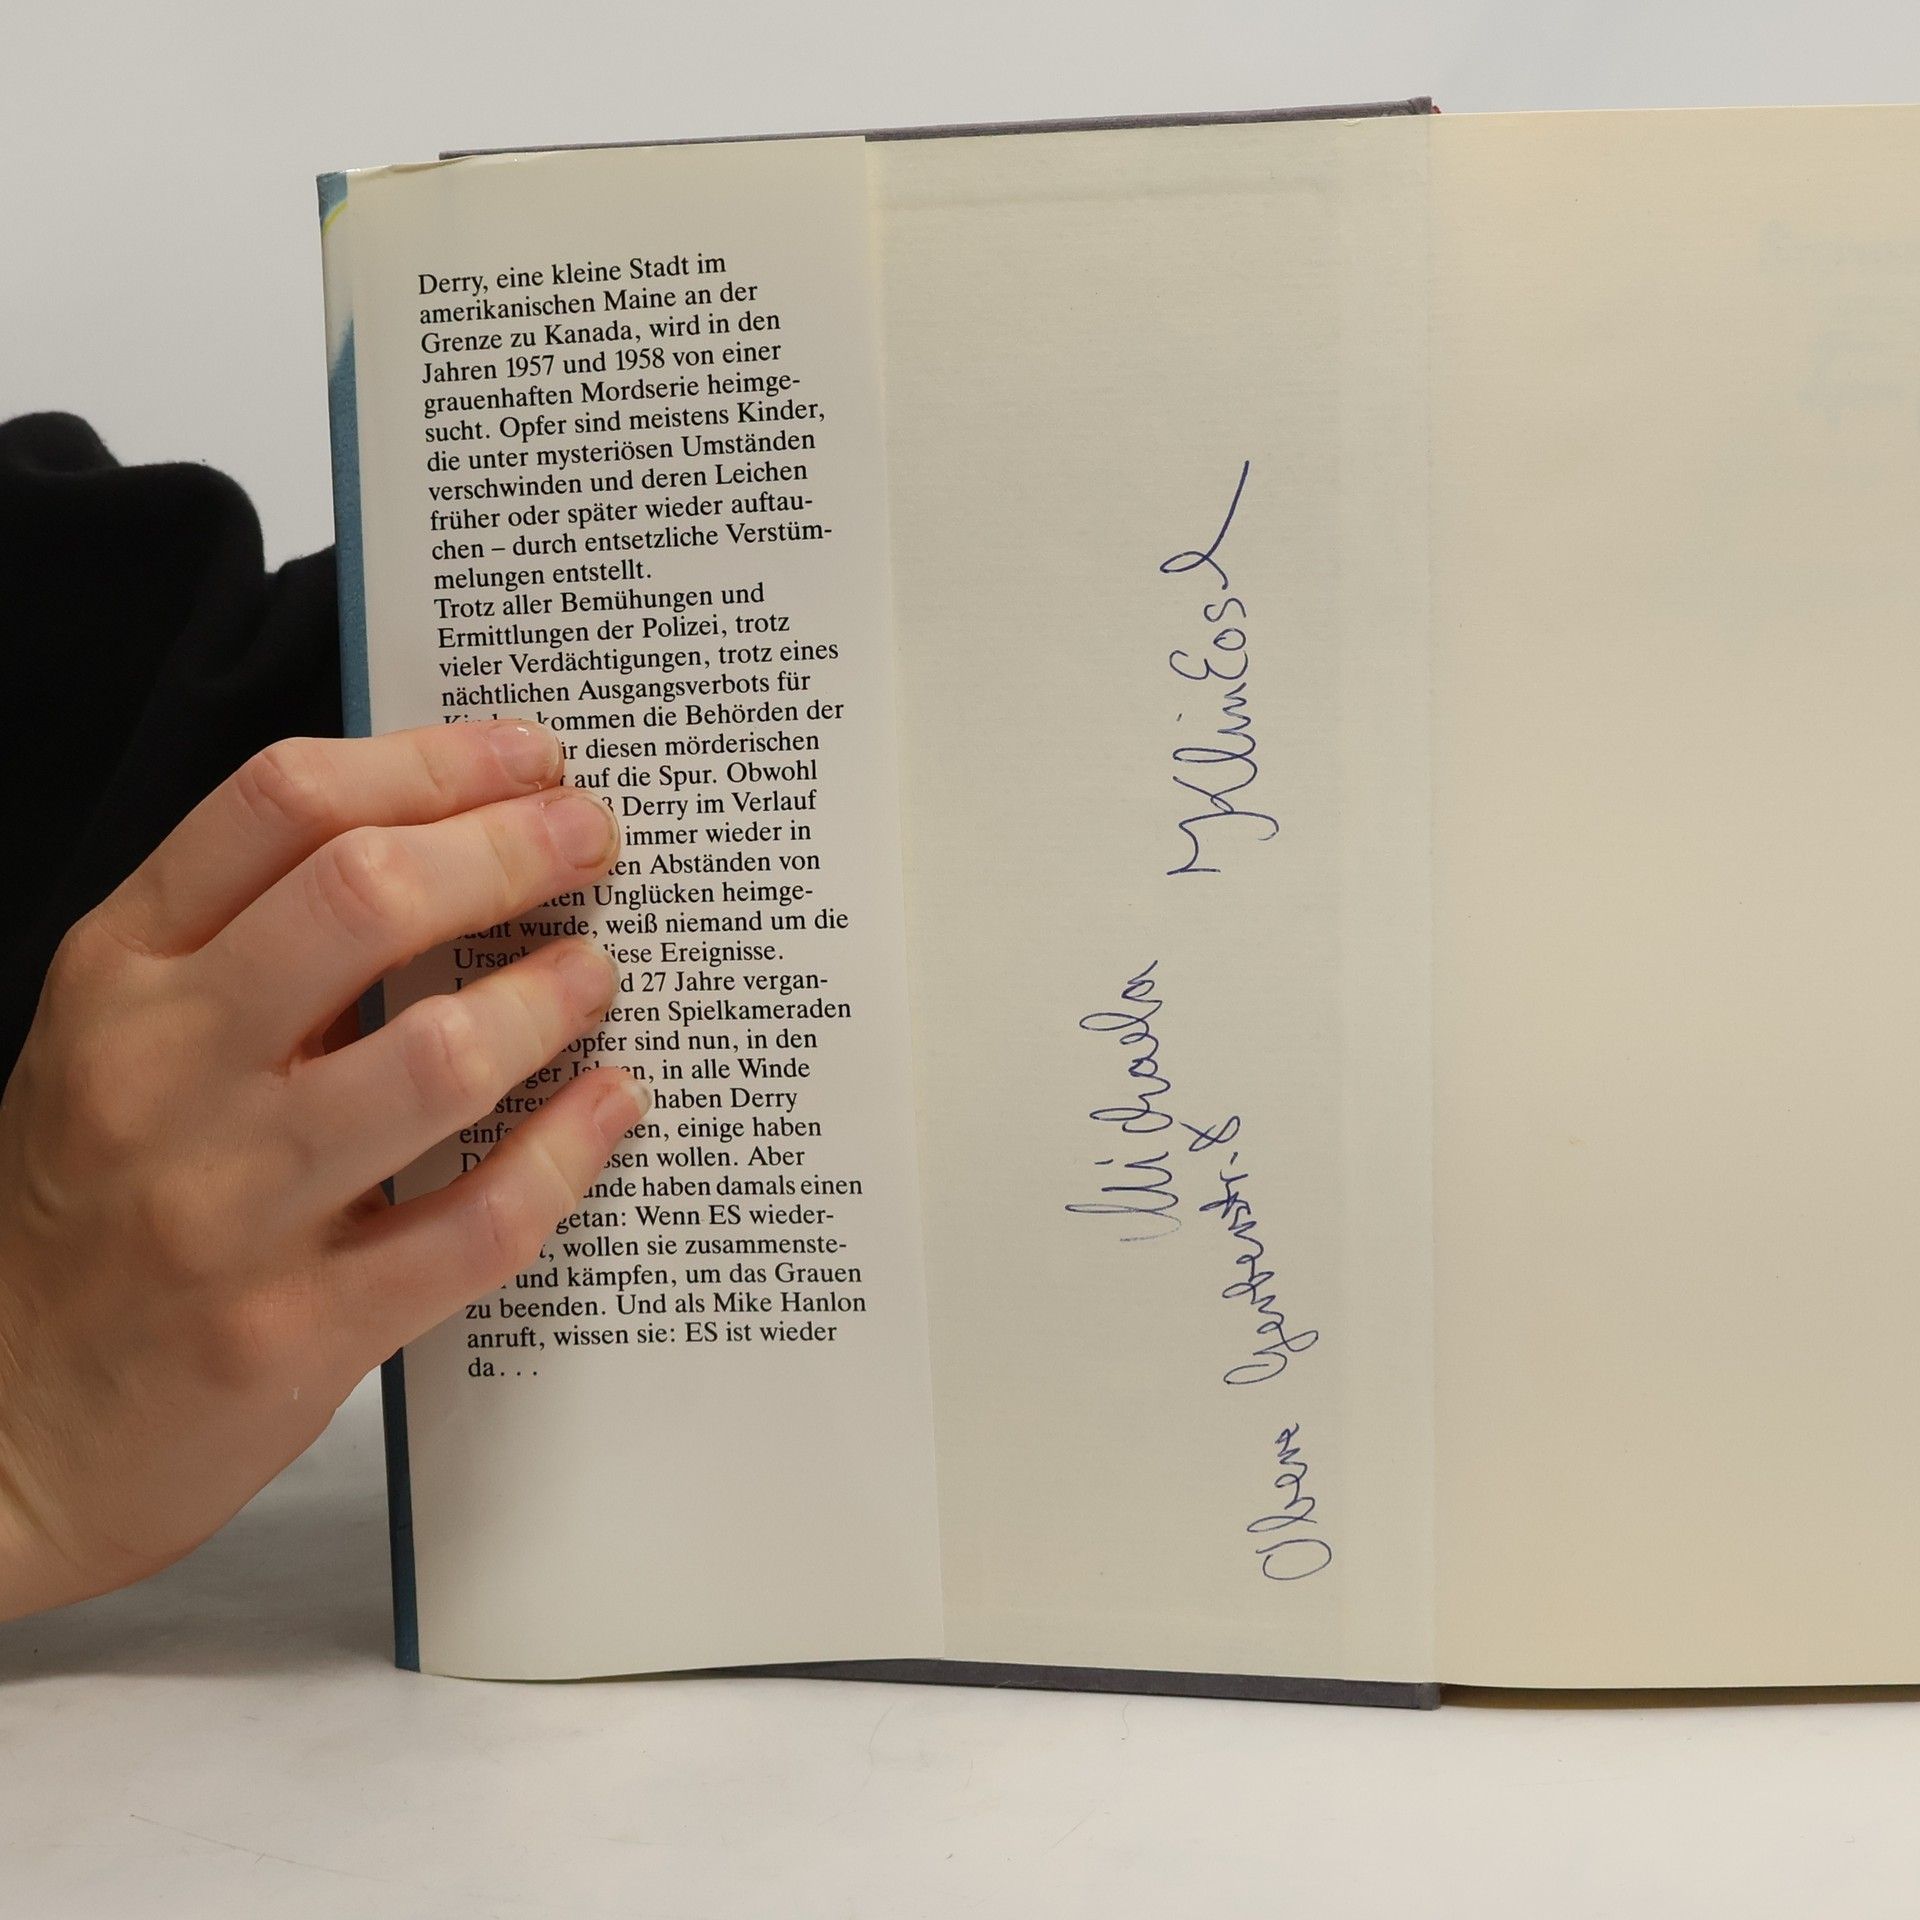 Derry, eine kleine Stadt im
amerikanischen Maine an der
Grenze zu Kanada, wird in den
Jahren 1957 und 1958 von einer
grauenhaften Mordserie heimge-
sucht. Opfer sind meistens Kinder,
die unter mysteriösen Umständen
verschwinden und deren Leichen
früher oder später wieder auftau-
chen – durch entsetzliche Verstüm-
melungen entstellt.
Trotz aller Bemühungen und
Ermittlungen der Polizei, trotz
vieler Verdächtigungen, trotz eines
nächtlichen Ausgangsverbots für
kommen die Behörden der
diesen mörderischen
auf die Spur. Obwohl
Derry im Verlauf
immer wieder in
Abständen von
Unglücken heimge-
wurde, weiß niemand um die
diese Ereignisse.
27 Jahre vergan-
Spielkameraden
sind nun, in den
in alle Winde
haben Derry
einige haben
wollen. Aber
haben damals einen
getan: Wenn ES wieder-
wollen sie zusammenste-
und kämpfen, um das Grauen
zu beenden. Und als Mike Hanlon
anruft, wissen sie: ES ist wieder
da. . .
Michaela